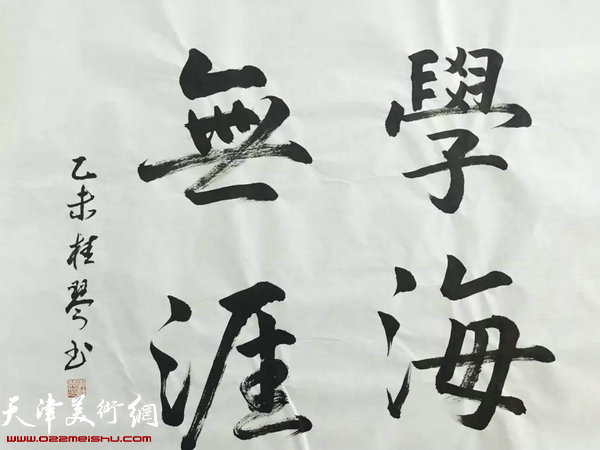 學海
無涯
乙未桂琴书
天津美術網
www.022meishu.com